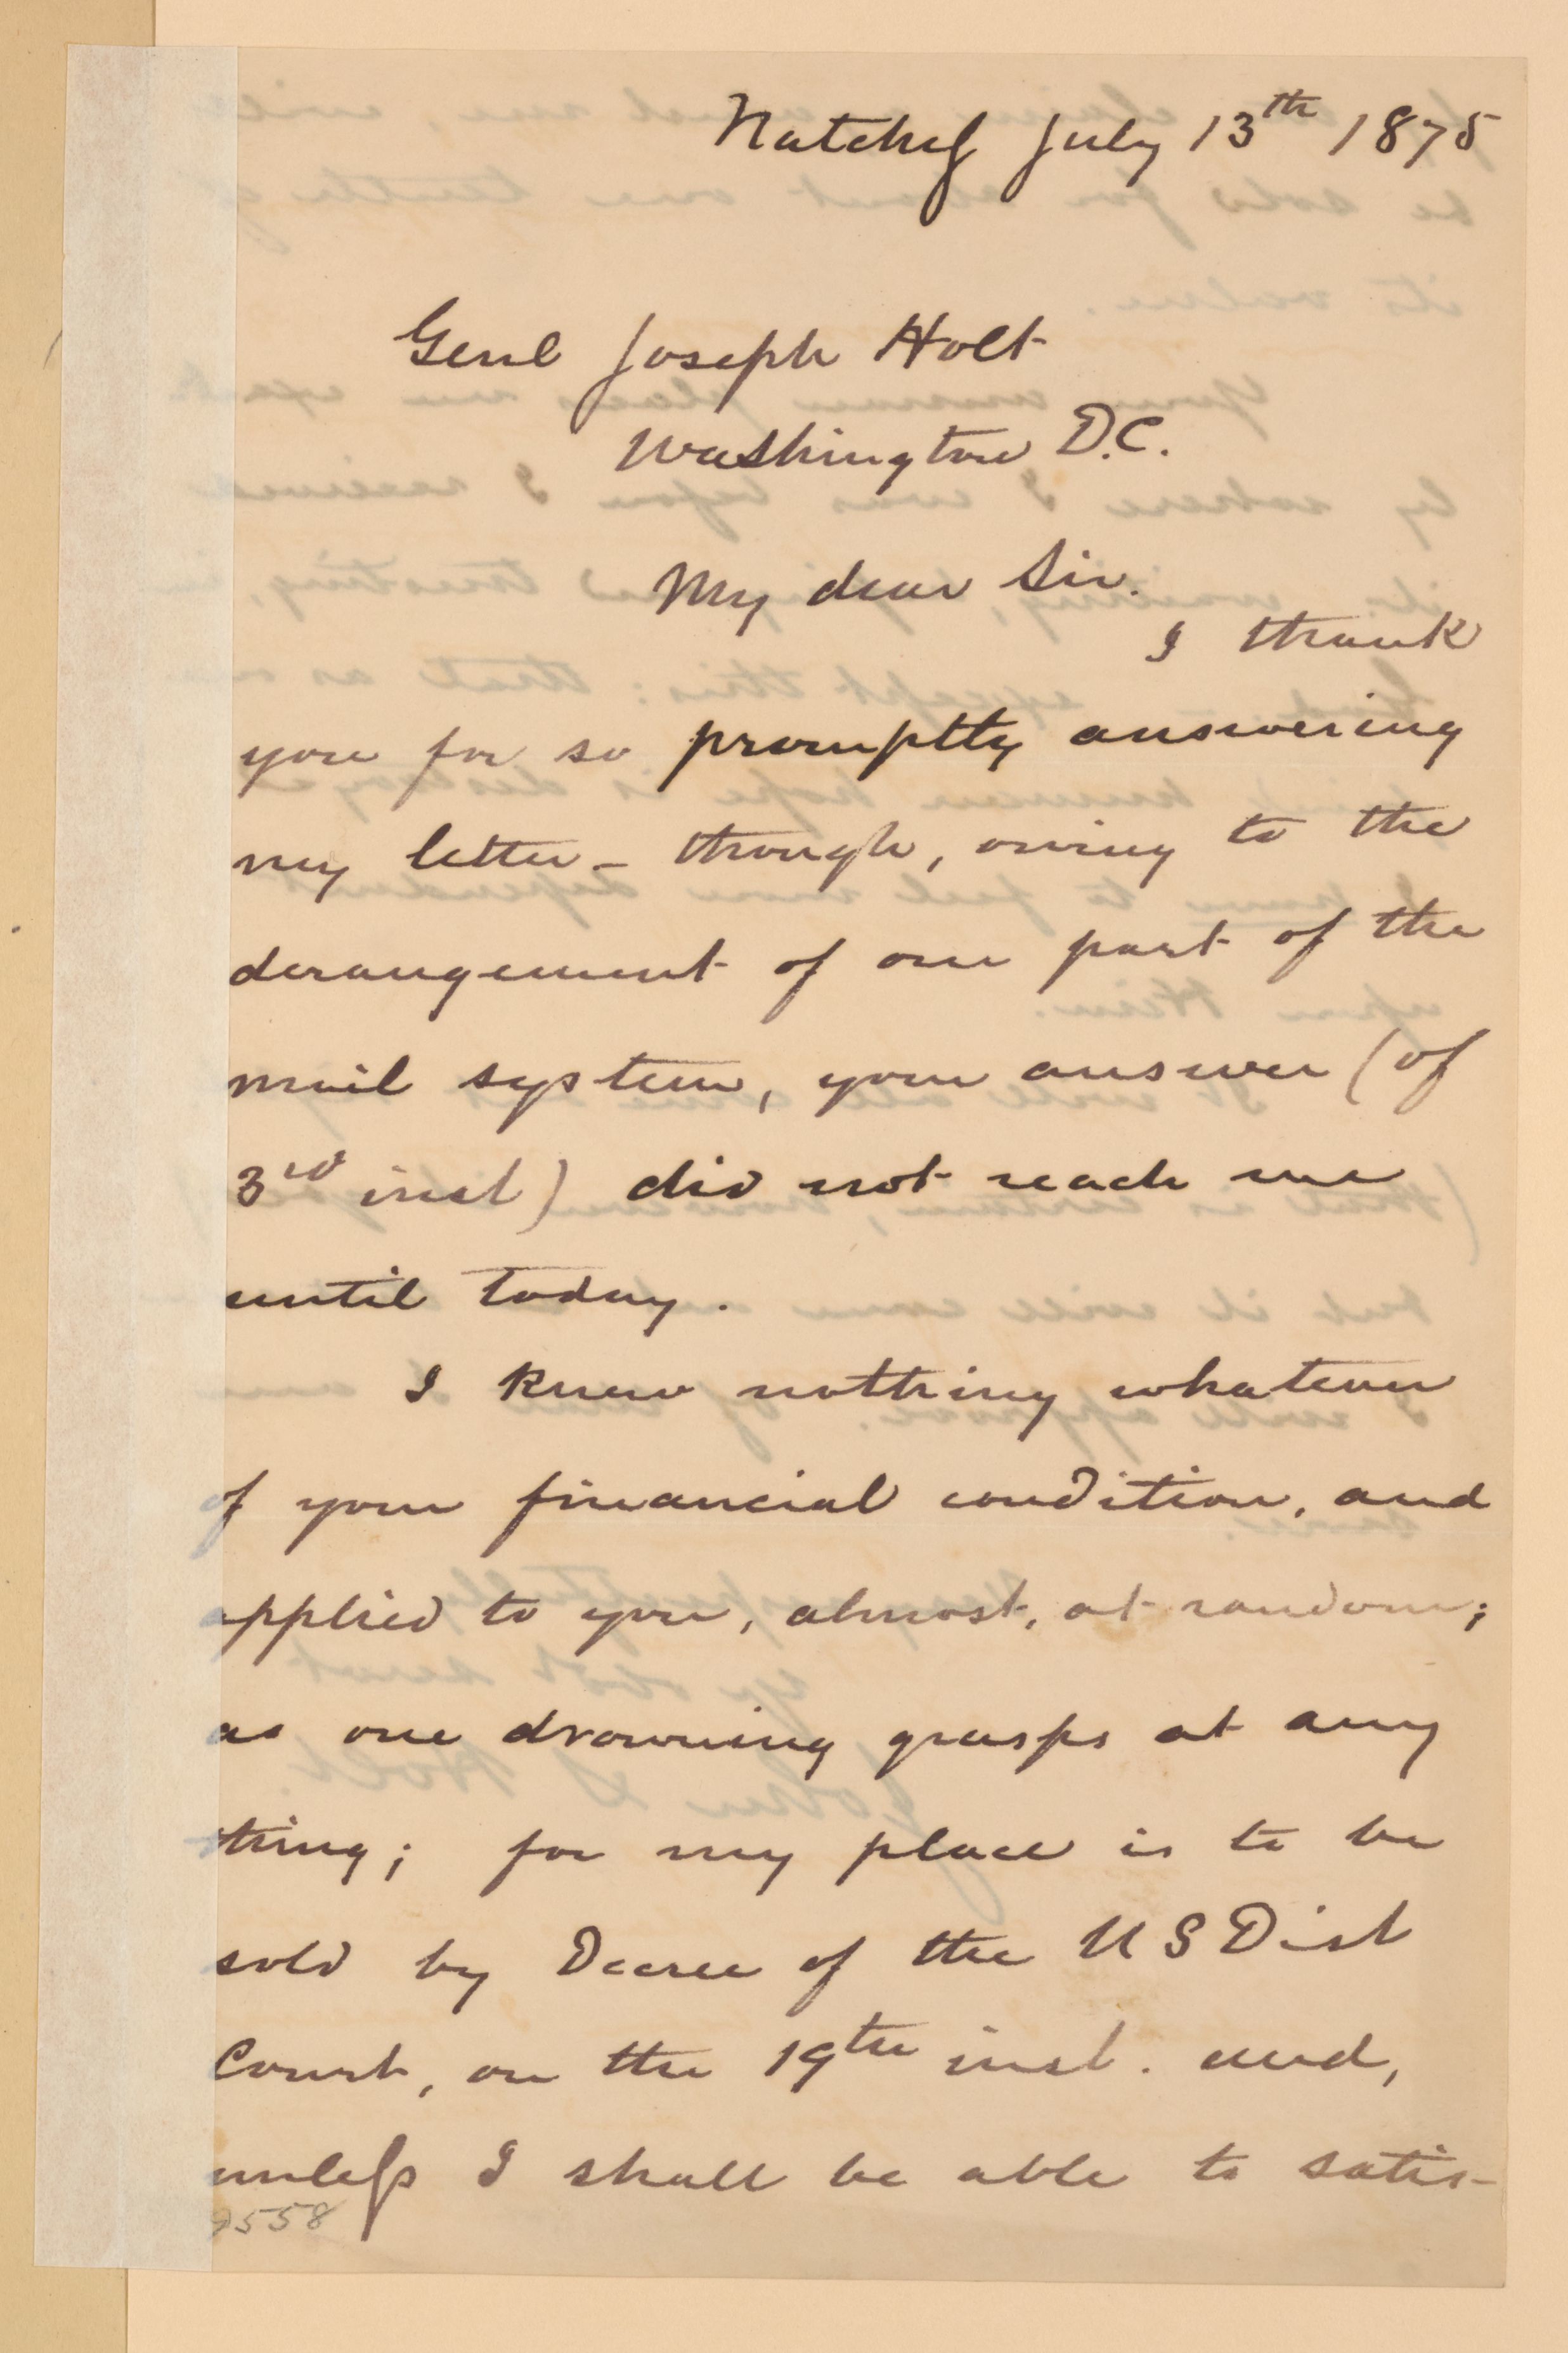 Natchez July 13th 1875
Genl Joseph Holt
Washington D.C.
My dear Sir.
I thank
you for so promptly answering
my letter – though, owing to the
derangement of one part of the
mail system, your answer (of
3rd inst) did not reach me
until today.
I knew nothing whatever
of your financial condition, and
applied to you, almost, at random;
as one drowning grasps at any
thing; for my place is to be
sold by Decree of the U S Dist
Court, on the 19th inst. and,
unless I shall be able to satis-
9558